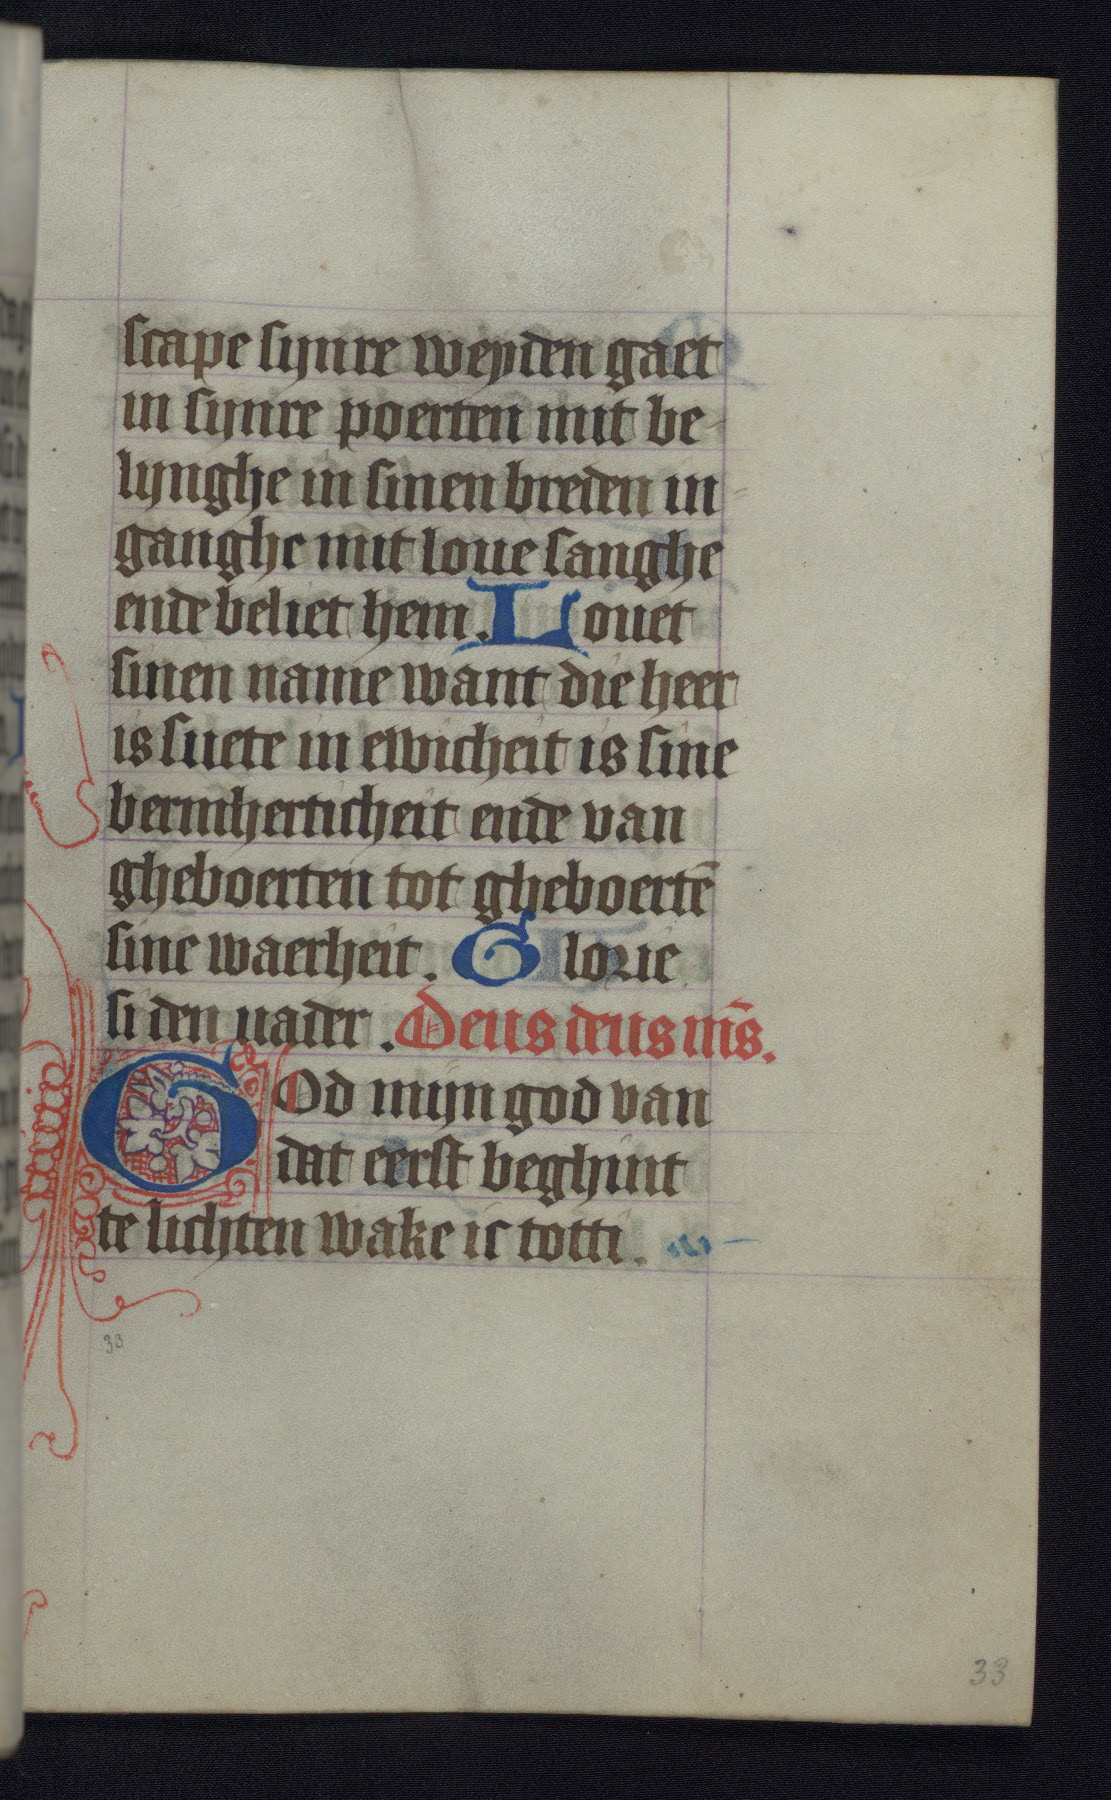 scape synre weyden gaet
in synre poerten mit be-
lynghe in sinen breden in=
ganghe mit loue sanghe
ende beliet hem. Louet
sinen name want die heer
is suete in ewicheit is sine
bermherticheit ende van
gheboerten tot gheboertē
sine waerheit. Glorie
si den uader. Deus deus ms̄.
GOd mijn god van
dat eerst beghint
te lichten wake ic totti.
33
33